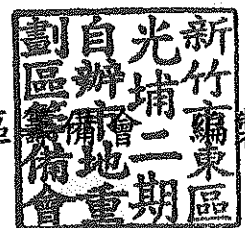 新竹市東區
光埔二期
自辦市地重
劃區籌備會
籌備會 編